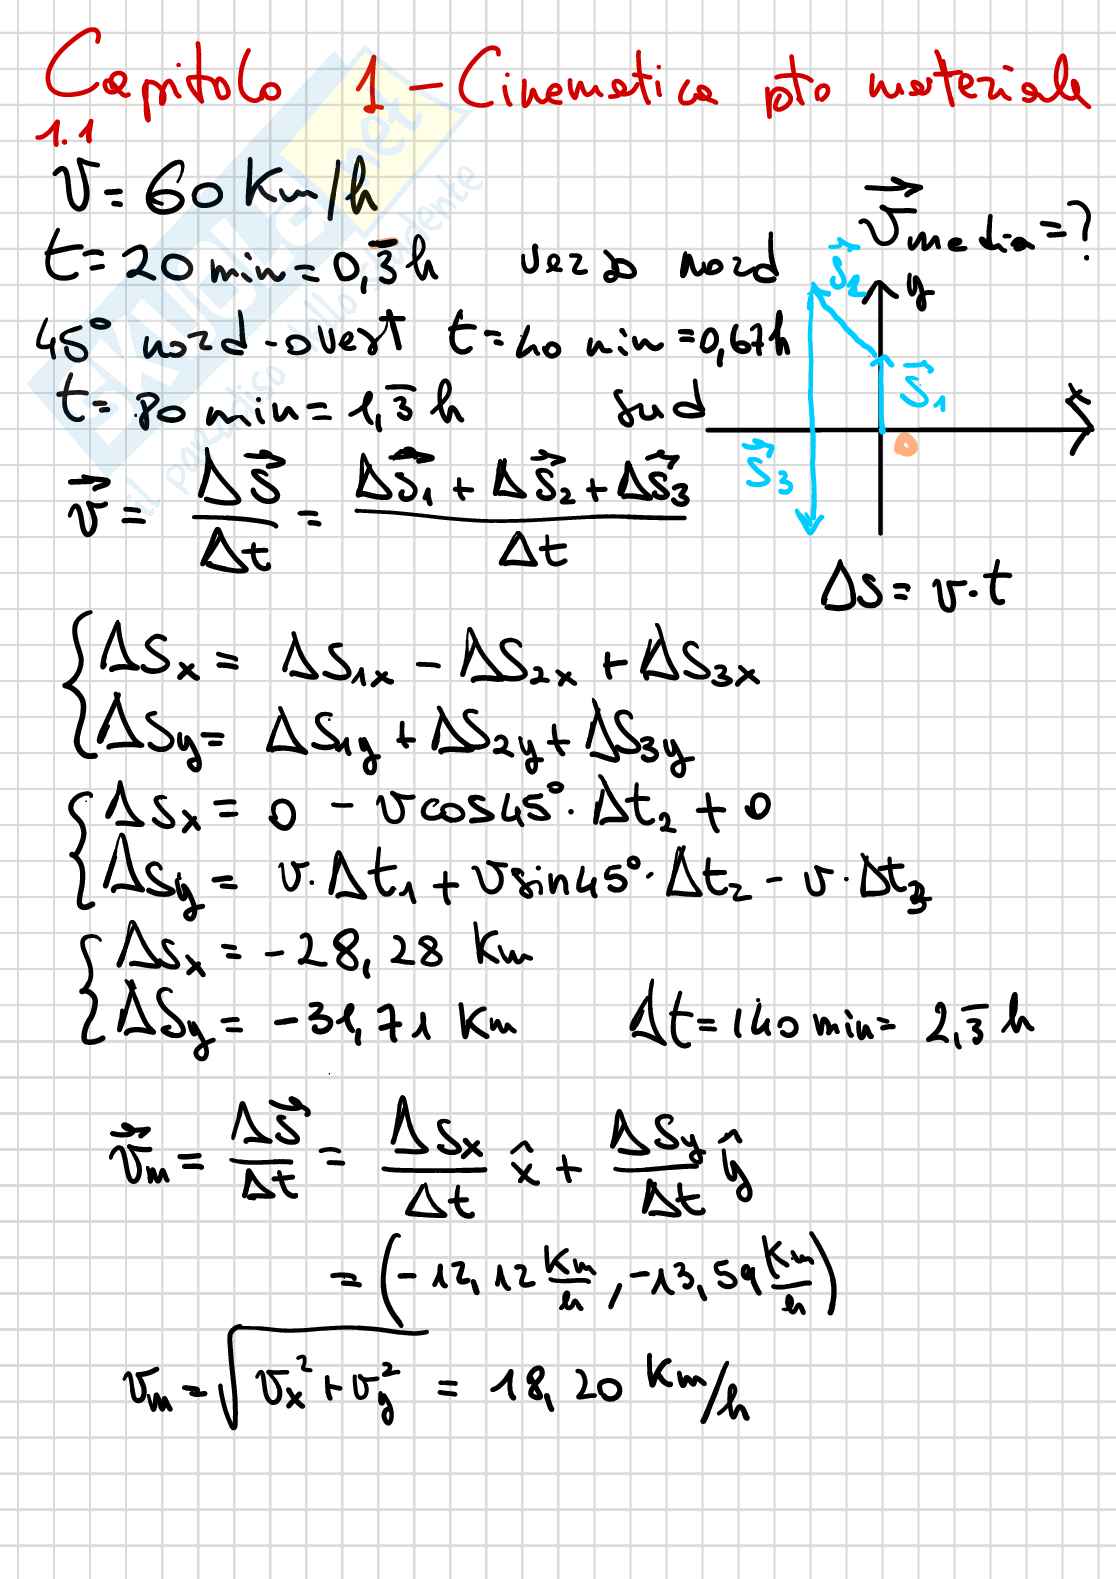 Capitolo 1 - Cinematica pto materiale
1.1
v = 60 Km/h
v⃗media = ?
t = 20 min = 0,3̅ h verso nord
s⃗2 y
45° nord-ovest t = 40 min = 0,67 h
s⃗1 x
t = 80 min = 1,3̅ h sud
0
s⃗3
v⃗ = Δs⃗/Δt = (Δs⃗1 + Δs⃗2 + Δs⃗3)/Δt
Δs = v · t
Δsx = Δs1x - Δs2x + Δs3x
Δsy = Δs1y + Δs2y + Δs3y
Δsx = 0 - v cos45° · Δt2 + 0
Δsy = v · Δt1 + v sin45° · Δt2 - v · Δt3
Δsx = -28,28 Km
Δsy = -31,71 Km Δt = 140 min = 2,3̅ h
v⃗m = Δs⃗/Δt = Δsx/Δt x̂ + Δsy/Δt ŷ
= (-12,12 Km/h, -13,59 Km/h)
vm = √(vx² + vy²) = 18,20 Km/h
SKUOLA.net
il paradiso dello studente